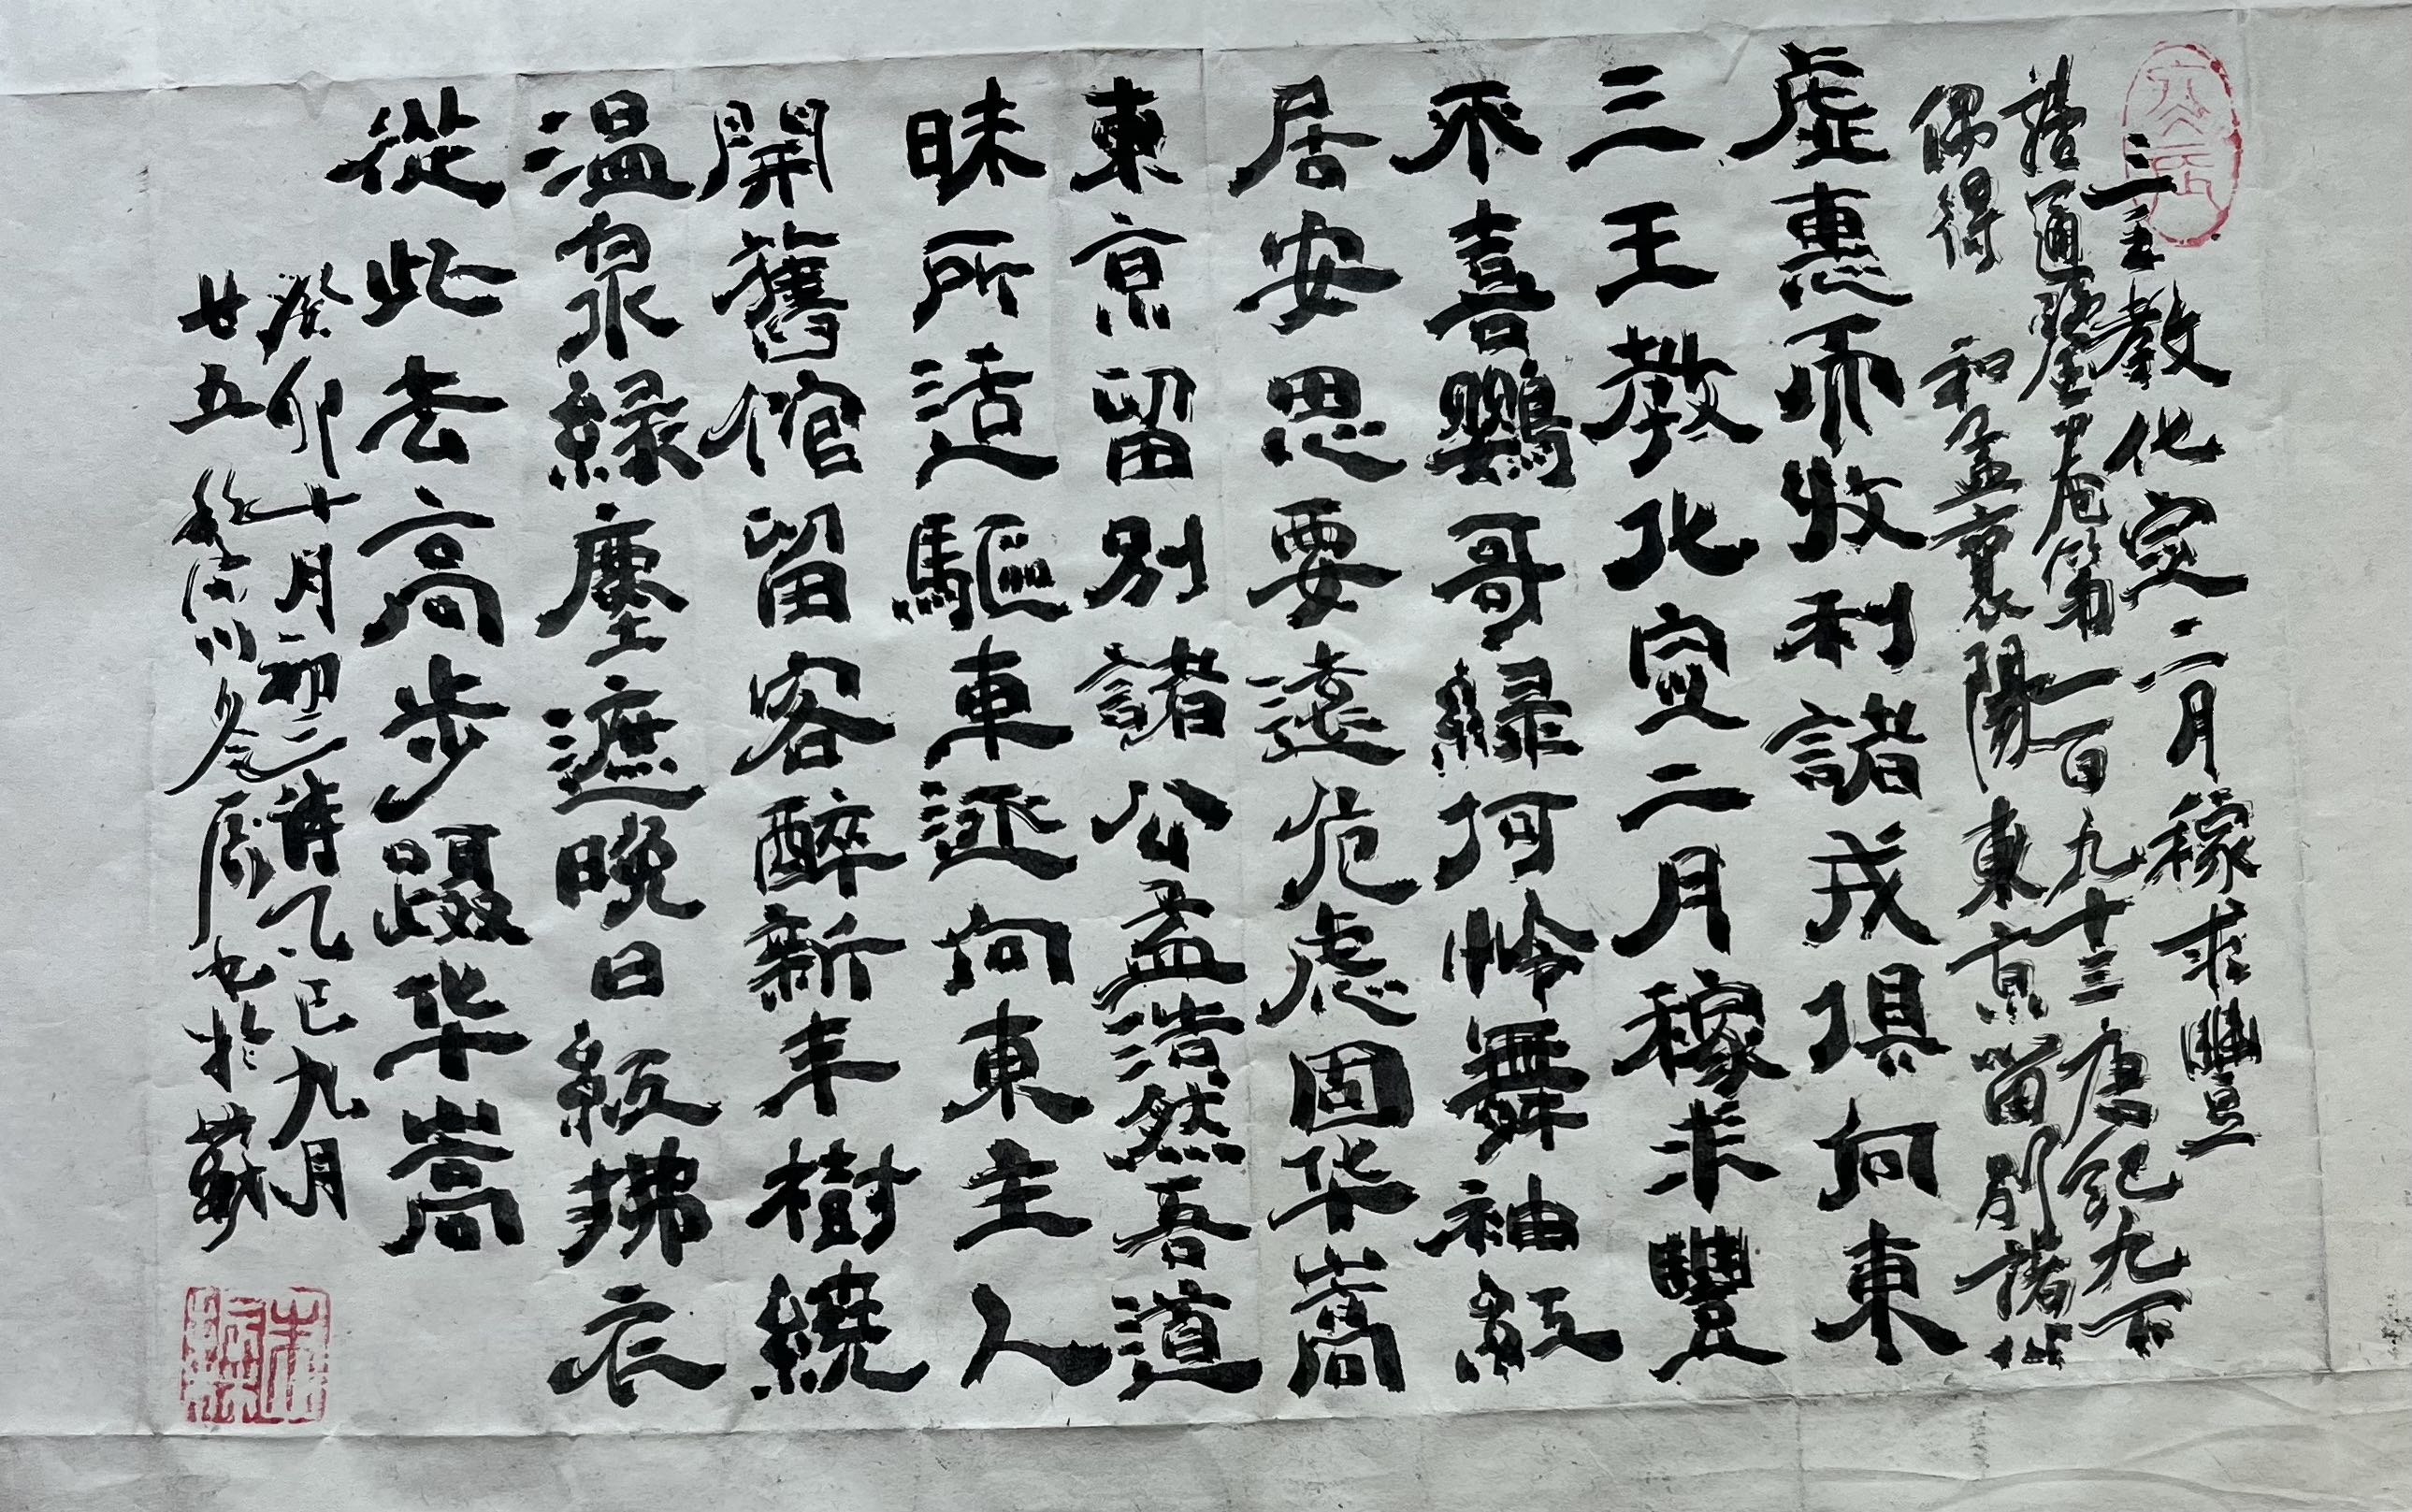 三王教化宣二月稼求豐
讀通鑒卷第一百九十三唐紀九而
偶得 和孟襄陽東京留別諸公
虛惠而收利諸戎俱向東
三王教化宣二月稼求豐
不喜鸚哥綠何怜舞袖紅
居安思要遠危慮固华嵩
東京留別諸公孟浩然吾道
昧所适驅車还向東主人
開舊館留客醉新丰樹繞
温泉緑塵遮晚日紅拂衣
從此去高步蹑华嵩
癸卯十月初三詩乙巳九月
廿五 於蘇